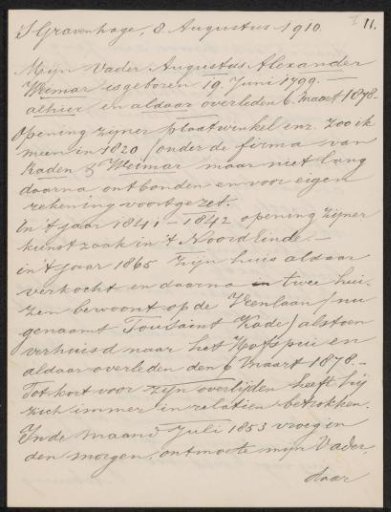 11.
S'Gravenhage, 8 Augustus 1910.
Mijn Vader Augustus Alexander
Weimar is geboren 19 Juni 1799 –
alhier en aldaar overleden 6 Maart 1878.
Opening zijner plaatwinkel enz. zoo ik
meen in 1820 /onder de firma van
Kaden & Weimar maar niet lang
daarna ontbonden en voor eigen
rekening voortgezet.
In 't jaar 1841 – 1842 opening zijner
kunstzaak in 't Noordeinde. –
in 't jaar 1865 zijn huis aldaar
verkocht en daarna in twee hui-
zen bewoont op de Veenlaan /nu
genaamt Tousaint Kade/ alstoen
verhuisd naar het Hofspui en
aldaar overleden den 6 Maart 1878. –
Tot kort voor zijn overlijden heeft hij
zich immer in relatien betrokken.
In de maand Juli 1853 vroegen
den morgen, ontmoete mijn Vader
daar